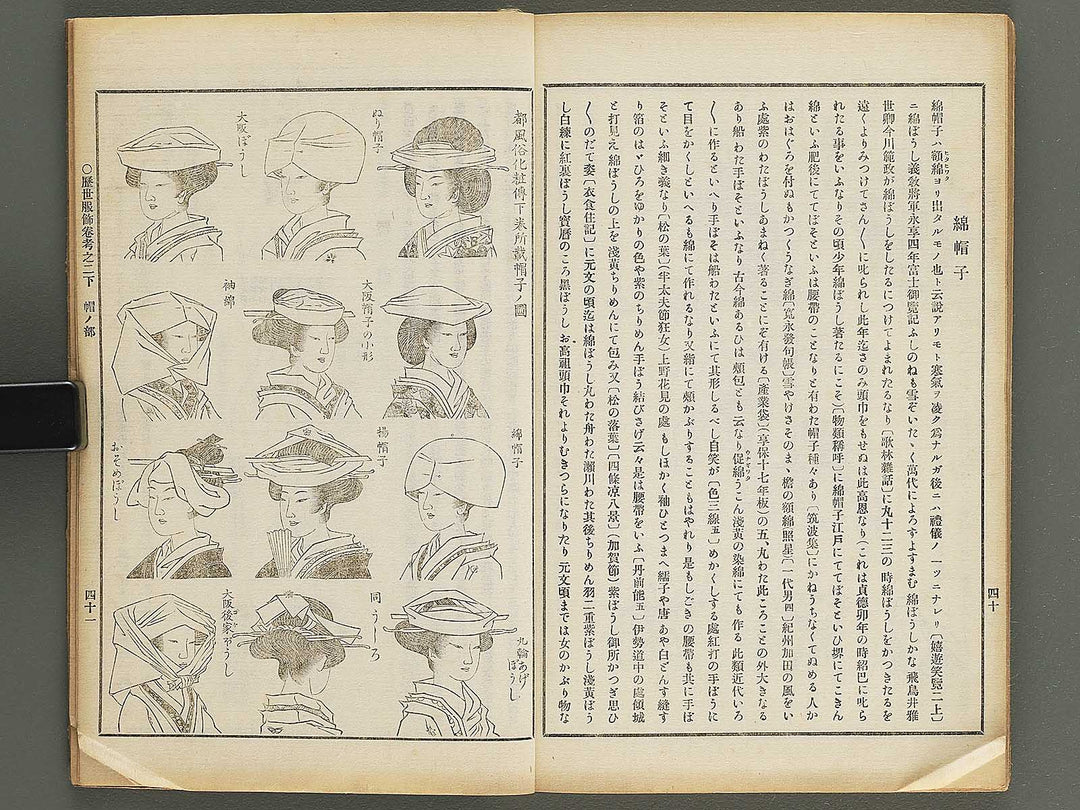 綿帽子
綿帽子ハ額綿ヨリ出タルモノ也ト云説アリモト寒氣ヲ凌ク爲ナルガ後ニハ禮儀ノ一ツニナレリ〔嬉遊笑覧二上〕
ニ綿ぼうし義敎將軍永享四年富士御覧記ふしのねも雪ぞいたゝく萬代によろすよすまむ綿ぼうしかな飛鳥井雅
世卿今川範政が綿ぼうしをしたるにつけてよまれたるなり〔歌林雜話〕に丸十二三の時綿ぼうしをかつきたるを
遠くよりみつけてさん〱に叱られし此年迄さのみ頭巾をもせぬは此高恩なり(これは貞德卯年の時紹巴に叱ら
れたる事をいふなりその頃少年綿ぼうし著たるにこそ)〔物類稱呼〕に綿帽子江戸にててぼそといひ堺にてこきん
綿といふ肥後にててぼそといふは腰帶のことなりと有わた帽子種々あり〔筑波集〕にかねうちなくてぬめる人か
はおはぐろを付ぬもかつくうなぎ綿〔寛永發句帳〕雪やけさそのまゝ檐の額綿照星〔一代男四〕紀州加田の風をい
ふ處紫のわたぼうしあまねく著ることにぞ有ける〔産業袋〕(享保十七年板)の五、丸わた此ころことの外大きなる
あり船わた手ぼそといふなり古今綿あるひは頰包とも云なり促綿うこん淺黃の染綿にても作る此類近代いろ
〱に作るといへり手ぼそは船わたといふにて其形しるべし自笑が〔色三線五〕めかくしする處紅打の手ぼうに
て目をかくしといへるも綿にて作れるなり又緒にて頰かぶりすることもはやれり是もしごきの腰帶も共に手ぼ
そといふ細き義なり〔松の葉〕(半太夫節狂女)上野花見の處もしほかく釉ひとつまへ繻子や唐あや白どんす縫す
り箔のはゞひろをゆかりの色や紫のちりめん手ぼう結びさげ云々是は腰帶をいふ〔丹前能五〕伊勢道中の處傾城
と打見え綿ぼうしの上を淺黃ちりめんにて包み又〔松の落葉〕〔四條凉八景〕(加賀節)紫ぼうし御所かつぎ思ひ
〱のだて姿〔衣食住記〕に元文の頃迄は綿ぼうし丸わた舟わた瀨川わた其後ちりめん羽二重紫ぼうし淺黃ぼう
し白練に紅裏ぼうし寶暦のころ黒ぼうしお高祖頭巾それよりむきつらになりたり元文頃までは女のかぶり物な
四十
都風俗化粧傳下卷所載帽子ノ圖
ぬり帽子
大阪ぼうし
大阪帽子の小形
袖綿
綿帽子
揚帽子
おそめぼうし
丸輪あげぼうし
同うしろ
大阪後家ぼうし
〇歴世服飾卷考之二下　帽ノ部
四十一